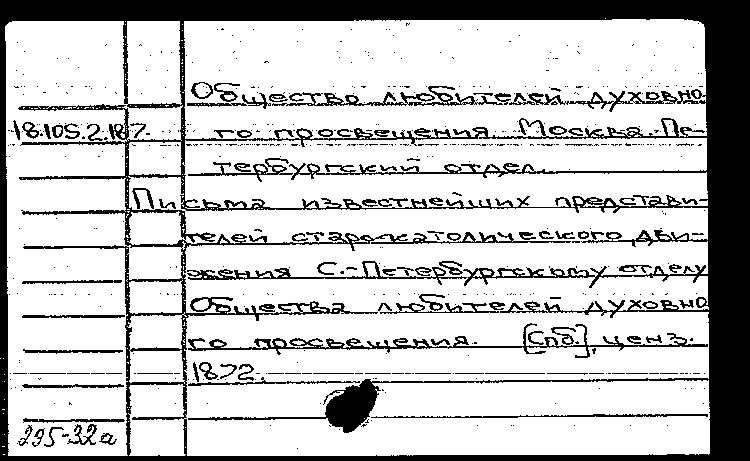 Общество любителей духовно-
18.105.2.187. го просвещения. Москва. Пе-
тербургский отдел.
Письма известнейших представи-
телей старокатолического дви-
жения С.-Петербургскому отделу
Общества любителей духовно
го просвещения. [Спб.], ценз.
1872.
295-32а